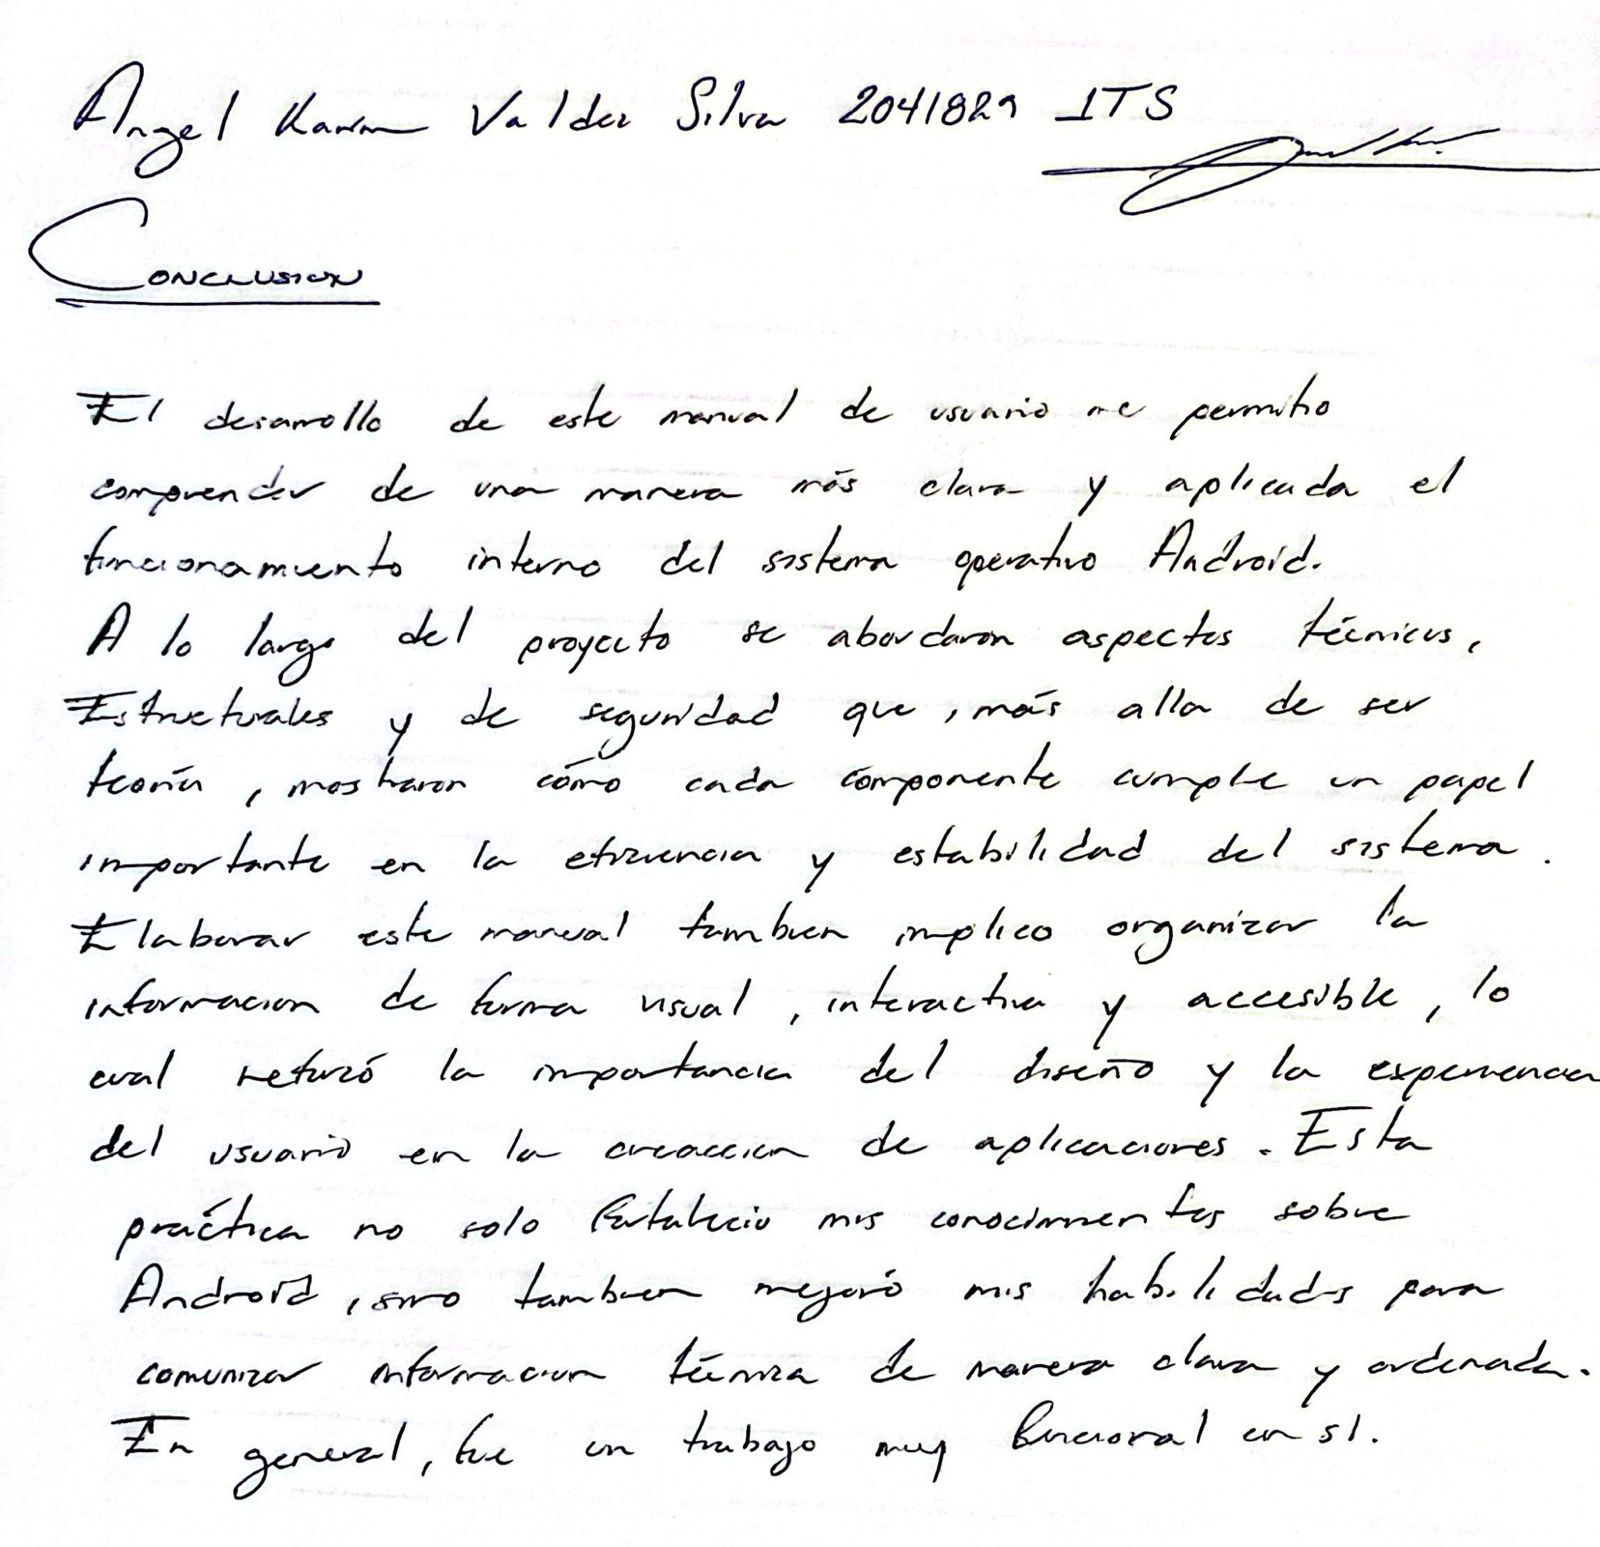 Angel Karim Valdez Silva 2041829 ITS
Conclusion
El desarrollo de este manual de usuario me permitio
comprender de una manera más clara y aplicada el
funcionamiento interno del sistema operativo Android.
A lo largo del proyecto se abordaron aspectos técnicos,
Estructurales y de seguridad que, más alla de ser
teoría, mostraron cómo cada componente cumple un papel
importante en la eficiencia y estabilidad del sistema.
Elaborar este manual tambien implico organizar la
informacion de forma visual, interactiva y accesible, lo
cual reforzó la importancia del diseño y la experiencia
del usuario en la creaccion de aplicaciones. Esta
práctica no solo fortalecio mis conocimientos sobre
Android, sino tambien mejoró mis habilidades para
comunicar informacion técnica de manera clara y ordenada.
En general, fue un trabajo muy funcional en si.